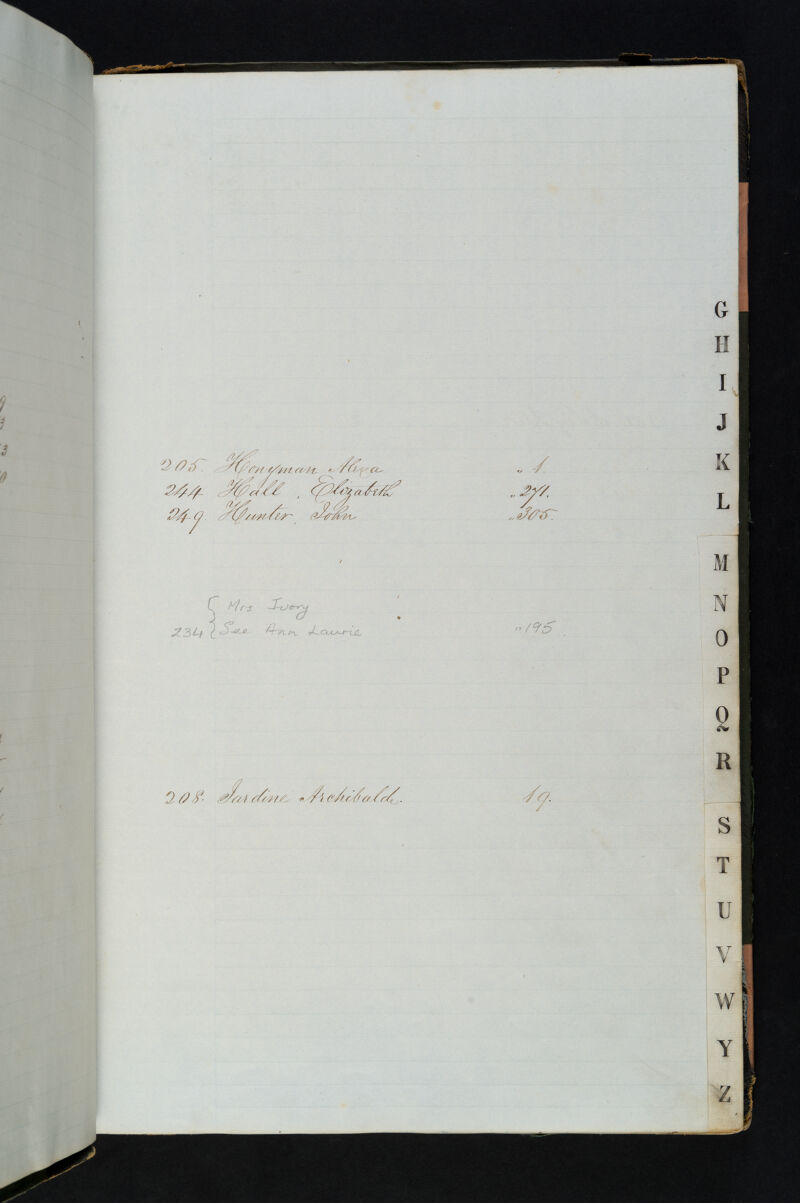 205. Honyman Alexa „ 1.
244 Hall, Elizabeth „ 271.
249. Hunter, John „ 305.
{ Mrs Ivory
234 { See Ann Laurie „ 195
208. Jardine Archibald. 19.
G
H
I
J
K
L
M
N
O
P
Q
R
S
T
U
V
W
Y
Z